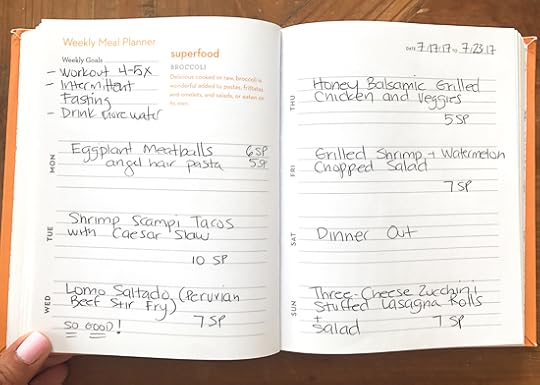 Weekly Meal Planner
Weekly Goals
- Workout 4-5x
- Intermittent
Fasting
- Drink more water
superfood
BROCCOLI
Delicious cooked or raw, broccoli is
wonderful added to pastas, frittatas
and omelets, and salads, or eaten on
its own.
MON
Eggplant Meatballs 6 SP
angel hair pasta 5 SP
TUE
Shrimp Scampi Tacos
with Caesar Slaw
10 SP
WED
Lomo Saltado (Peruvian
Beef Stir Fry)
7 SP
SO GOOD!
DATE 7.17.17 to 7.23.17
THU
Honey Balsamic Grilled
Chicken and Veggies
5 SP
FRI
Grilled Shrimp + Watermelon
Chopped Salad
7 SP
SAT
Dinner Out
SUN
Three-Cheese Zucchini
Stuffed Lasagna Rolls
+
Salad 7 SP